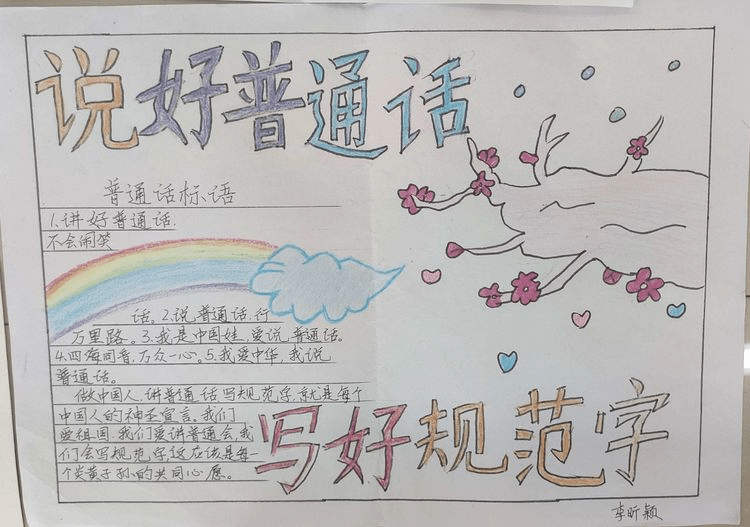 说好普通话
普通话标语
1.讲好普通话.
不会闹笑
话。2.说普通话,行
万里路。3.我是中国娃,爱说普通话。
4.四海同音,万众一心。5.我爱中华,我说
普通话。
做中国人,讲普通话写规范字,就是每个
中国人的神圣宣言。我们
爱祖国,我们爱讲普通会,我
们会写规范字这应该是每一
个炎黄子孙的共同心愿。
写好规范字
李昕颖